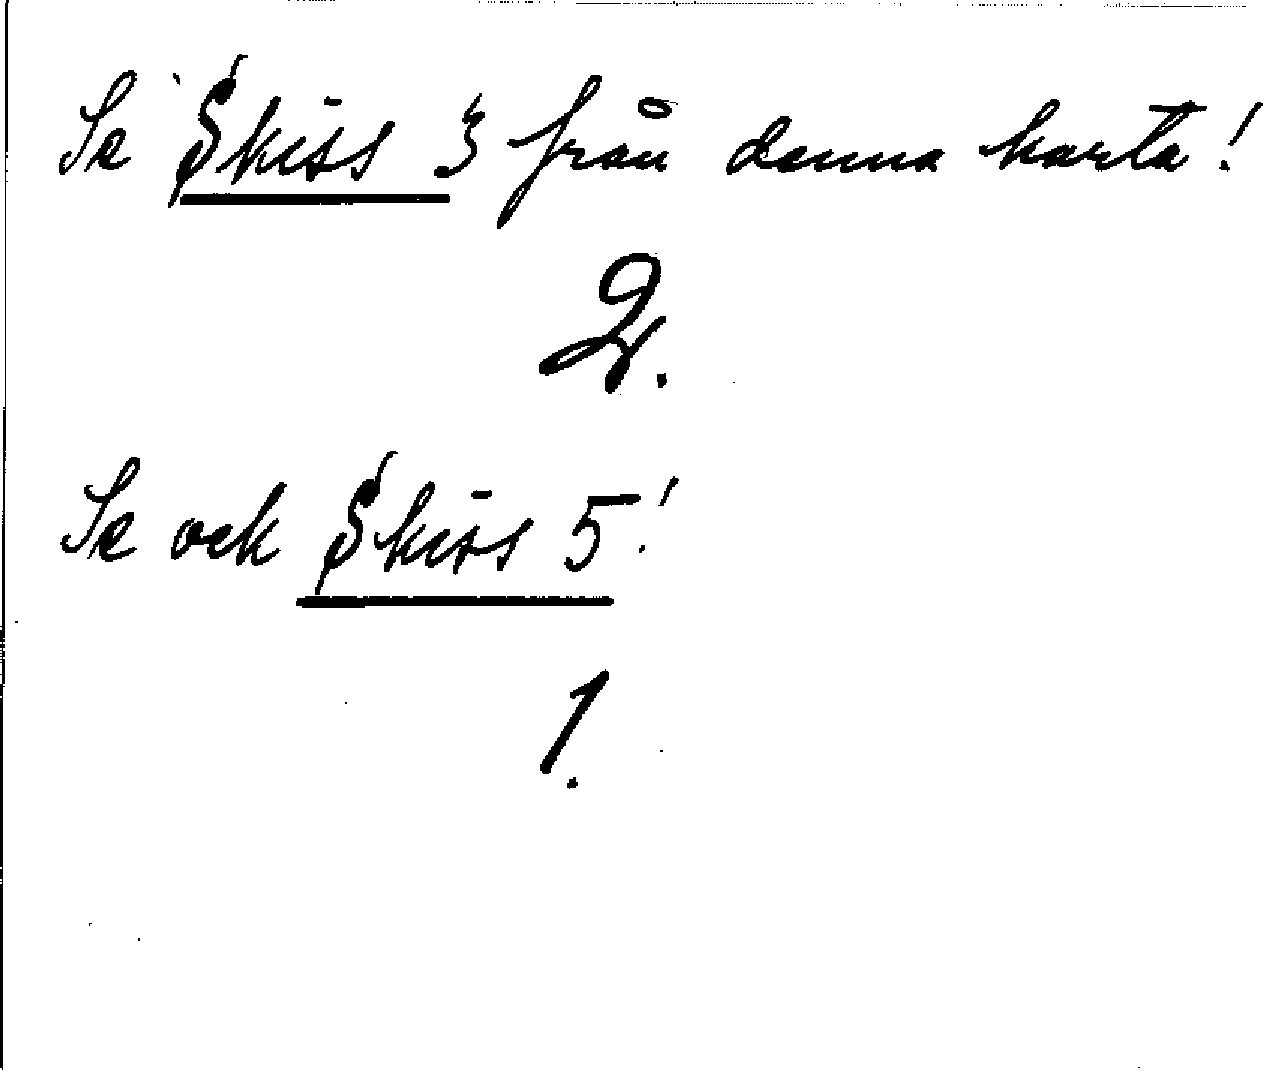 Se Skiss 3 från denna karta!
2.
Se ock Skiss 5!
1.